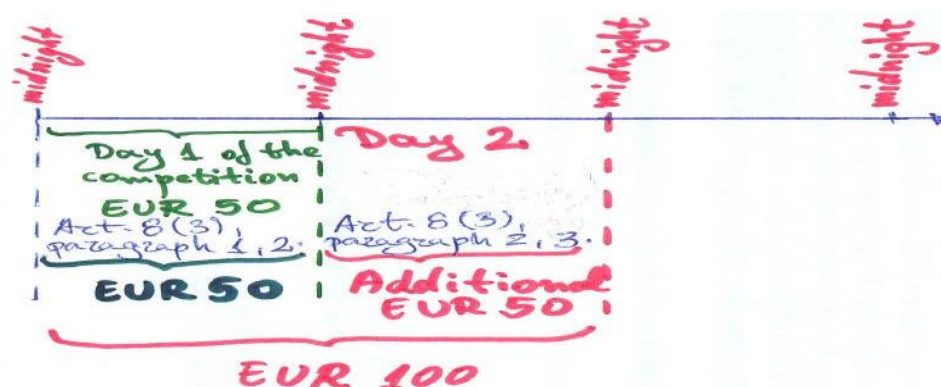 midnight midnight midnight midnight
Day 1 of the
competition
EUR 50
Art. 8(3),
paragraph 1, 2.
EUR 50
Day 2.
Art. 8(3),
paragraph 2, 3.
Additional
EUR 50
EUR 100